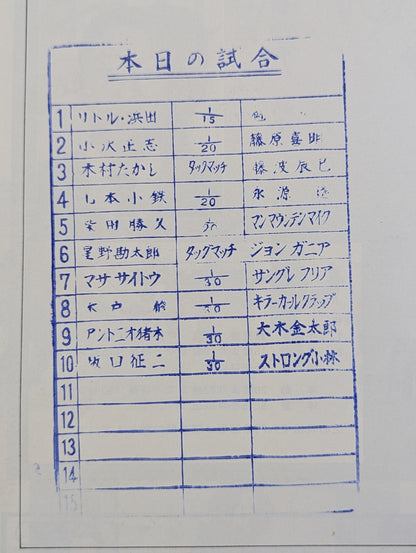 本日の試合
1 リトル・浜田 1/15
2 小沢正志 1/20 藤原喜明
3 木村たかし タッグマッチ 藤波辰巳
4 山本小鉄 1/20 永源
5 柴田勝久 マンマウンテンマイク
6 星野勘太郎 タッグマッチ ジョン ガニア
7 マサ サイトウ 1/30 サングレ フリア
8 木戸 修 キラーカールクラップ
9 アントニオ猪木 1/30 大木金太郎
10 坂口征二 1/30 ストロング小林
11
12
13
14
15